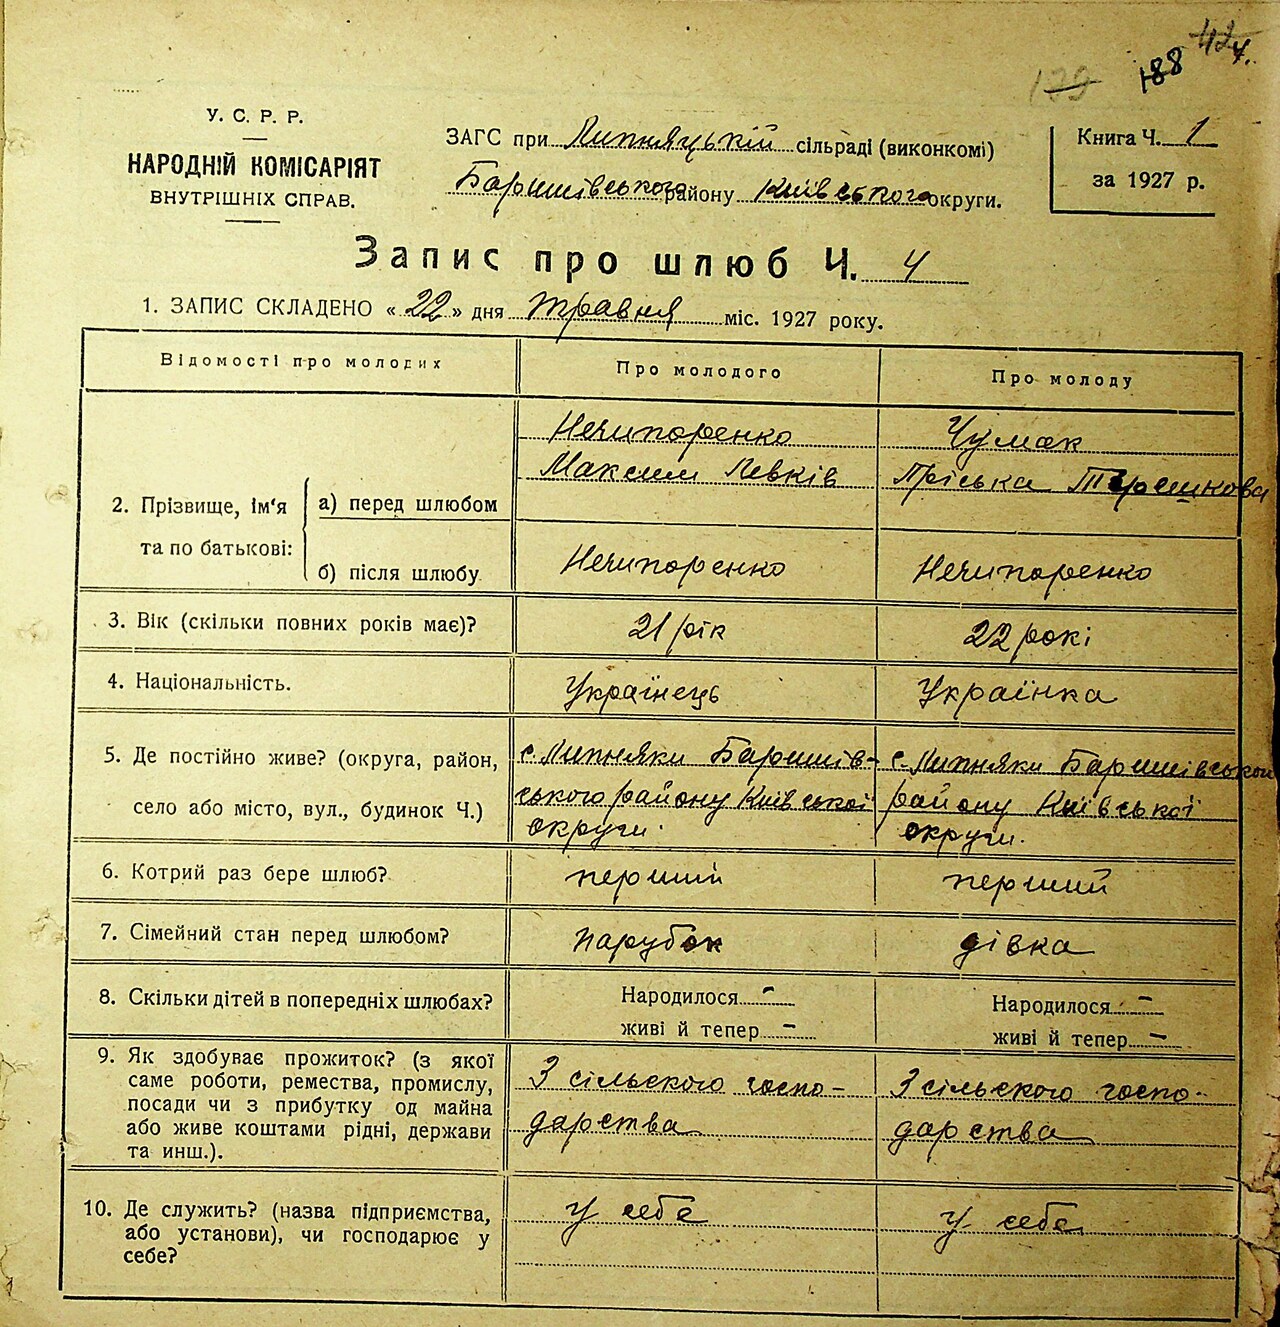 188
У. С. Р. Р.
НАРОДНІЙ КОМІСАРІЯТ
ВНУТРІШНІХ СПРАВ.
ЗАГС при Липняцькій сільраді (виконкомі)
Баришівського району Київського округи.
Книга Ч. 1
за 1927 р.
Запис про шлюб Ч. 4
1. ЗАПИС СКЛАДЕНО «22» дня травня міс. 1927 року.
Відомості про молодих
Про молодого
Про молоду
2. Прізвище, ім'я
та по батькові:
а) перед шлюбом
Нечипоренко
Максим Левків
Чумак
Пріська Терешкова
б) після шлюбу
Нечипоренко
Нечипоренко
3. Вік (скільки повних років має)?
21 рік
22 рокі
4. Національність.
Українець
Українка
5. Де постійно живе? (округа, район,
село або місто, вул., будинок Ч.)
с. Липняки Баришів-
ського району Київської
округи.
с. Липняки Баришівського
району Київської
округи.
6. Котрий раз бере шлюб?
перший
перший
7. Сімейний стан перед шлюбом?
парубок
дівка
8. Скільки дітей в попередніх шлюбах?
Народилося -
живі й тепер -
Народилося -
живі й тепер -
9. Як здобуває прожиток? (з якої
саме роботи, ремества, промислу,
посади чи з прибутку од майна
або живе коштами рідні, держави
та инш.).
З сільского госпо-
дарства
З сільского госпо-
дарства
10. Де служить? (назва підприємства,
або установи), чи господарює у
себе?
у себе
у себе